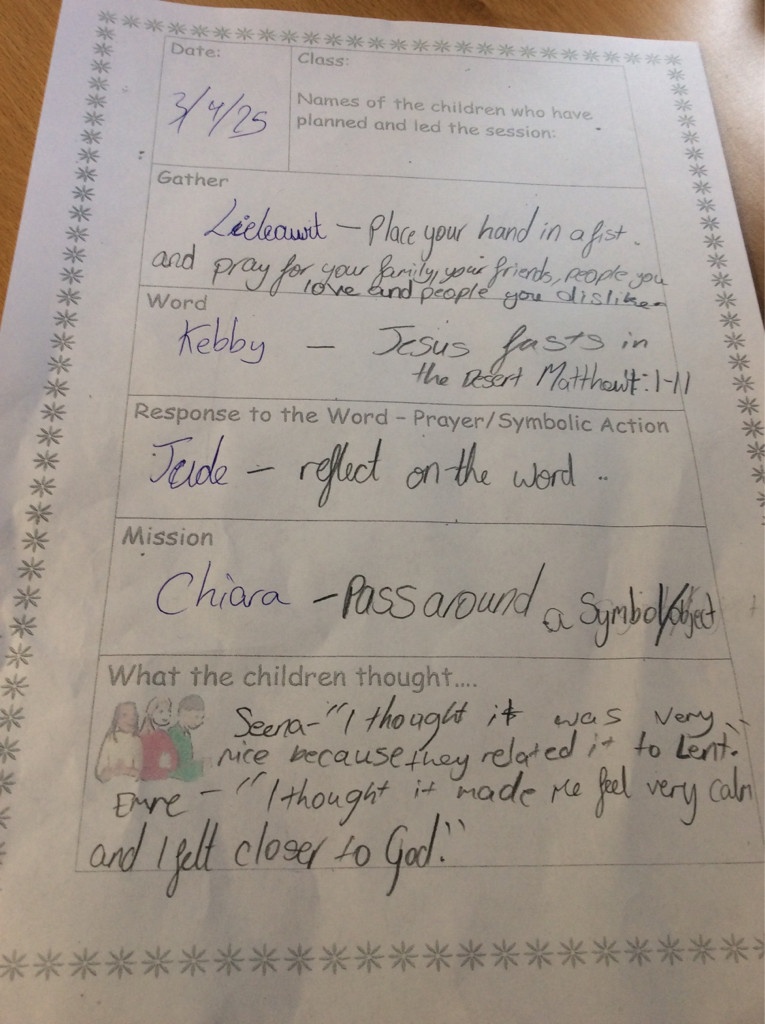 Date:
Class:
3/4/25
Names of the children who have
planned and led the session:
Gather
– Place your hand in a fist.
and pray for your family, your friends, people you
love and people you dislike.
Word
Kebby – Jesus fasts in
the Desert Matthew4:1-11
Response to the Word – Prayer/Symbolic Action
Jude – reflect on the word ..
Mission
Chiara – Pass around a Symbol/object
What the children thought....
Seena – "I thought it was very
nice because they related it to Lent."
Emre – "I thought it made me feel very calm
and I felt closer to God."